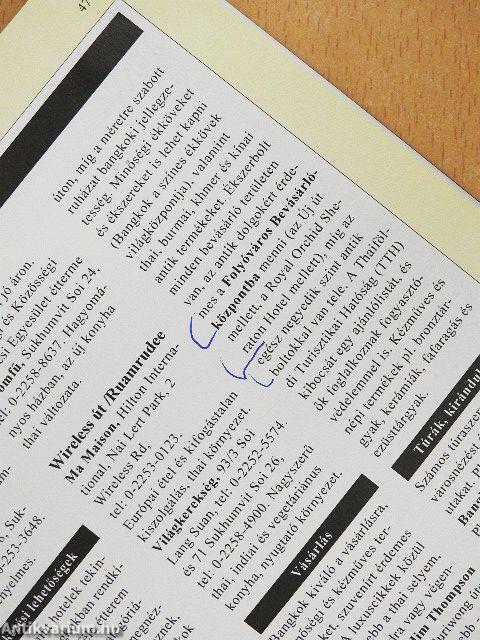 47
jó áron.
s és Közösségi
si Egyesület étterme
omfú, Sukhumvit Soi 24,
el: 0-2258-8637. Hagyomá-
nyos házban, az új konyha
thai változata.
Suk-
253-3648.
nyelmes.
si lehetőségek
Wireless út /Ruamrudee
Ma Maison, Hilton Interna-
tional, Nai Lert Park, 2
Wireless Rd,
tel: 0-2253-0123.
Európai étel és kifogástalan
kiszolgálás, thai környezet.
Világkerekség, 93/3 Soi
Lang Suan tel: 0-2252-5574.
és 71 Sukhumvit Soi 26,
tel: 0-2258-4900. Nagyszerű
thai, indiai és vegetáriánus
konyha, nyugtató környezet.
Vásárlás
Bangkok kiváló a vásárlásra,
és kézműves ter-
szívenért érdemes
luxuscikkek közül
a thai selyem,
vagy végen-
Thompson
úton, míg a méretre szabott
ruházat bangkoki jellegze-
tesség. Minőségi ékköveket
és ékszereket is lehet kapni
(Bangkok a színes ékkövek
világközpontja), valamint
thai, burmai, khmer és kínai
antik termékeket. Ékszerbolt
minden bevásárló területen
van, az antik dolgokért érde-
mes a Folyóváros Bevásárló-
központba menni (az Új út
mellett, a Royal Orchid She-
raton Hotel mellett), míg az
egész negyedik szint antik
boltokkal van tele. A Thaiföl-
di Turisztikai Hatóság (TTH)
kibocsát egy ajánlólistát, és
ők foglalkoznak fogyasztó-
védelemmel is. Kézműves és
népi termékek pl. bronztár-
gyak, kerámiák, fafaragás és
ezüsttárgyak.
Túrák, kirándul
Számos túraszer
városnézési
utakat. P
Antikvarium.hu